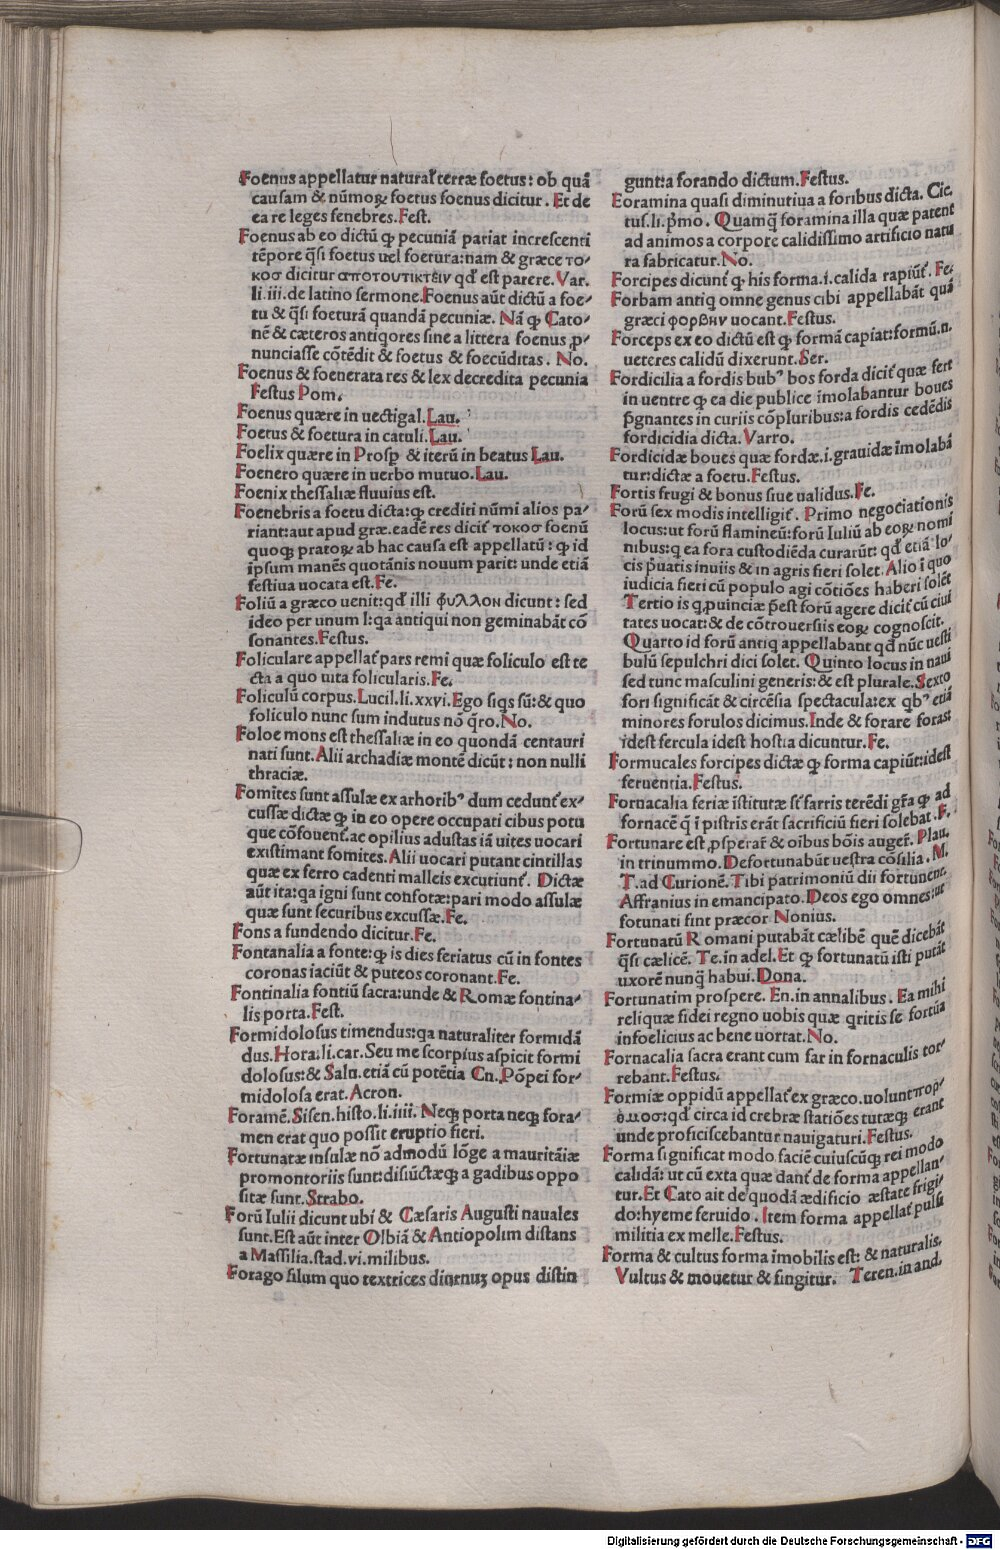 Foenus appellatur natural' terræ foetus: ob quā
causam & nūmoꝝ foetus foenus dicitur. Et de
ea re leges fenebres. Fest.
Foenus ab eo dictū ꝙ pecuniā pariat increscenti
tēpore q̄si foetus uel foetura: nam & græce το-
κοσ dicitur αποτουτικτειν qd̄ est parere. Var.
li.iii. de latino sermone. Foenus aūt dictū a foe-
tu & q̄si foeturā quandā pecuniæ. Nā ꝙ Cato-
nē & cæteros antiqores sine a littera foenus ꝓ-
nunciasse cōtēdit & foetus & foecūditas. No.
Foenus & foenerata res & lex decredita pecunia
Festus Pom.
Foenus quære in uectigal. Lau.
Foetus & foetura in catuli. Lau.
Foelix quære in Prosp & iterū in beatus Lau.
Foenero quære in uerbo mutuo. Lau.
Foenix thessaliæ fluuius est.
Foenebris a foetu dicta: ꝙ crediti nūmi alios pa-
riant: aut apud græ. eadē res dicit̄ τοκοσ foenū
quoqꝫ pratoꝝ ab hac causa est appellatū: ꝙ id
ipsum manēs quotānis nouum parit: unde etiā
festiua uocata est. Fe.
Foliū a græco uenit: qd̄ illi φυλλον dicunt: sed
ideo per unum l: qa antiqui non geminabāt cō
sonantes. Festus.
Foliculare appellat̄ pars remi quæ foliculo est te
cta a quo uita folicularis. Fe.
Foliculū corpus. Lucil. li. xxvi. Ego siqs sū: & quo
foliculo nunc sum indutus nō q̄ro. No.
Foloe mons est thessaliæ in eo quondā centauri
nati sunt. Alii archadiæ montē dicūt: non nulli
thraciæ.
Fomites sunt assulæ ex arborib' dum cedunt̄ ex-
cussæ dictæ ꝙ in eo opere occupati cibus potu
que cōfouent̄. ac opilius adustas iā uites uocari
existimant fomites. Alii uocari putant cintillas
quæ ex ferro cadenti malleis excutiunt̄. Dictæ
aūt ita: qa igni sunt confotæ: pari modo assulæ
quæ sunt securibus excussæ. Fe.
Fons a fundendo dicitur. Fe.
Fontanalia a fonte: ꝙ is dies feriatus cū in fontes
coronas iaciūt & puteos coronant. Fe.
Fontinalia fontiū sacra: unde & Romæ fontina-
lis porta. Fest.
Formidolosus timendus: qa naturaliter formidā
dus. Hora. li. car. Seu me scorpius aspicit formi
dolosus: & Salu. etiā cū potētia Cn. Pōpei for-
midolosa erat. Acron.
Foramē. Sisen. histo. li. iiii. Neqꝫ porta neqꝫ fora-
men erat quo possit eruptio fieri.
Fortunatæ insulæ nō admodū lōge a mauritāiæ
promontoriis sunt: disiūctæqꝫ a gadibus oppo
sitæ sunt. Strabo.
Forū Iulii dicunt ubi & Cæsaris Augusti nauales
sunt. Est aūt inter Olbiā & Antiopolim distans
a Massilia. stad. vi. milibus.
Forago filum quo textrices diurnuꝫ opus distin
gunt: a forando dictum. Festus.
Foramina quasi diminutiua a foribus dicta. Cic.
tus. li. p̄mo. Quamq̄ foramina illa quæ patent
ad animos a corpore calidissimo artificio natu
ra fabricatur. No.
Forcipes dicunt̄ ꝙ his forma. i. calida rapiūt̄. Fe.
Forbam antiq omne genus cibi appellabāt quā
græci φορβην uocant. Festus.
Forceps ex eo dictū est ꝙ formā capiat: formū. n.
ueteres calidū dixerunt. Ser.
Fordicilia a fordis bub' bos forda dicit̄ quæ fert
in uentre ꝙ ea die publice īmolabantur boues
p̄gnantes in curiis cōpluribus: a fordis cedēdis
fordicidia dicta. Varro.
Fordicidæ boues quæ fordæ. i. grauidæ īmolabā
tur: dictæ a foetu. Festus.
Fortis frugi & bonus siue ualidus. Fe.
Forū sex modis intelligit̄. Primo negociationis
locus: ut forū flamineū: forū Iuliū ab eoꝝ nomi
nibus: q ea fora custodiēda curarūt: qd̄ etiā lo-
cis p̄uatis inuiis & in agris fieri solet. Alio ī quo
iudicia fieri cū populo agi cōtiōes haberi solēt
Tertio is q ꝓuinciæ p̄est forū agere dicit̄ cū ciui
tates uocat: & de cōtrouersiis eoꝝ cognoscit.
Quarto id forū antiq appellabant qd̄ nūc uesti
bulū sepulchri dici solet. Quinto locus in naui
sed tunc masculini generis: & est plurale. Sexto
fori significāt & circēsia spectacula: ex qb' etiā
minores forulos dicimus. Inde & forare foras
idest fercula idest hostia dicuntur. Fe.
Formucales forcipes dictæ ꝙ forma capiūt: idest
feruentia. Festus.
Fornacalia feriæ īstitutæ st̄ farris terēdi gr̄a ꝙ ad
fornacē q̄ ī pistris erāt sacrificiū fieri solebat. F.
Fortunare est ꝓsperar̄ & oībus bōis auger̄. Plau.
in trinummo. Defortunabūt uestra cōsilia. M.
T. ad Curionē. Tibi patrimoniū dii fortunent.
Affranius in emancipato. Deos ego omnes: ut
fotunati sint præcor Nonius.
Fortunatū Romani putabāt cælibē quē dicebāt
q̄si cælicē. Te. in adel. Et ꝙ fortunatū isti putāt
uxorē nunq̄ habui. Dona.
Fortunatim prospere. En. in annalibus. Ea mihi
reliquæ fidei regno uobis quæ qritis se fortūa
infoelicius ac bene uortat. No.
Fornacalia sacra erant cum far in fornaculis tor-
rebant. Festus.
Formiæ oppidū appellat̄ ex græco. uolunt πορ-
ὁμοσ: qd̄ circa id crebræ statiōes tutæqꝫ erant
unde proficiscebantur nauigaturi. Festus.
Forma significat modo faciē cuiuscūqꝫ rei modo
calidā: ut cū exta quæ dant̄ de forma appellan-
tur. Et Cato ait de quodā ædificio æstate frigi-
do: hyeme feruido. Item forma appellat̄ pulsū
militia ex melle. Festus.
Forma & cultus forma īmobilis est: & naturalis.
Vultus & mouetur & fingitur. Teren. in and.
Digitalisierung gefördert durch die Deutsche Forschungsgemeinschaft - DFG